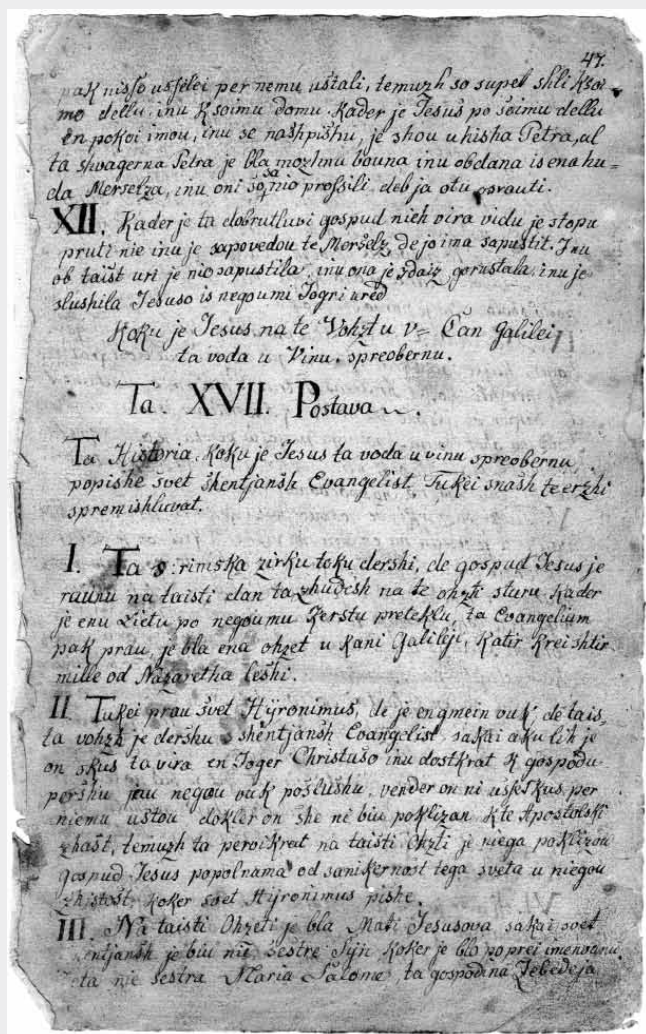 47.
pak nisso usselei per nemu ustali, temuzh so supet shli k soi=
mo dellu, inu k soimu domu. Kader je Jesus po soimu dellu
en pokoi imou, inu se nashpishu, je shou u hisha Petra, al
ta shvagerna Petra je bla mozhnu bouna inu obdana is ena hu=
da Merselza, inu oni so sa nio prossili, deb ja otu osrauti.
XII. Kader je ta dobrutluvi gospud nieh vira vidu je stopu
pruti nie inu je sapovedou te Merselz, de jo ima sapustit. Inu
ob taist uri je nio sapustila, inu ona je sdaiz gorustala, inu je
slushila Jesuso is negoumi Jogri ured
Koku je Jesus na te Vohzt u v= Can Galilei
ta voda u Vinu. spreobernu.
Ta. XVII. Postava
Ta Historia. Koku je Jesus ta voda u vinu spreobernu,
popishe svet shentjansh Evangelist. Tukei snash te erzhi
spremishluvat.
I. Ta s: rimska zirku toku dershi, de gospud Jesus je
raunu na taisti dan ta zhudesh na te ohzti sturu. Kader
je enu Lietu po negoumu Kerstu preteklu, ta Evangelium
pak prau, je bla ena ohzet u Kani Galileji, Katir Krei shtir
mille od Nazaretha leshi.
II Tukei prau svet Hijronimus, de je en gmein vuk, de tais,
ta vohzh je dershu shentjansh Evangelist, sakai aku lih je
on skus ta vira en Joger Christuso inu dostkrat k gospodu
pershu jeu negou vuk poslushu, vender on ni uskskus per
niemu ustou dokler on she ne biu poklizan k te Apostolski
zhast, temuzh ta pervikrat na taisti Ohzti je niega poklizou
gospud Jesus popolnama od sanikernost tega sveta u niegou
zhistost, koker svet Hijronimus pishe.
III. Na taisti Ohzeti je bla Mati Jesusova sakai svet
shentjansh je biu nie sestre Sijn koker je blo poprei imenvanu
ta nie sestra Maria Salome, ta gospodina Zebedeja